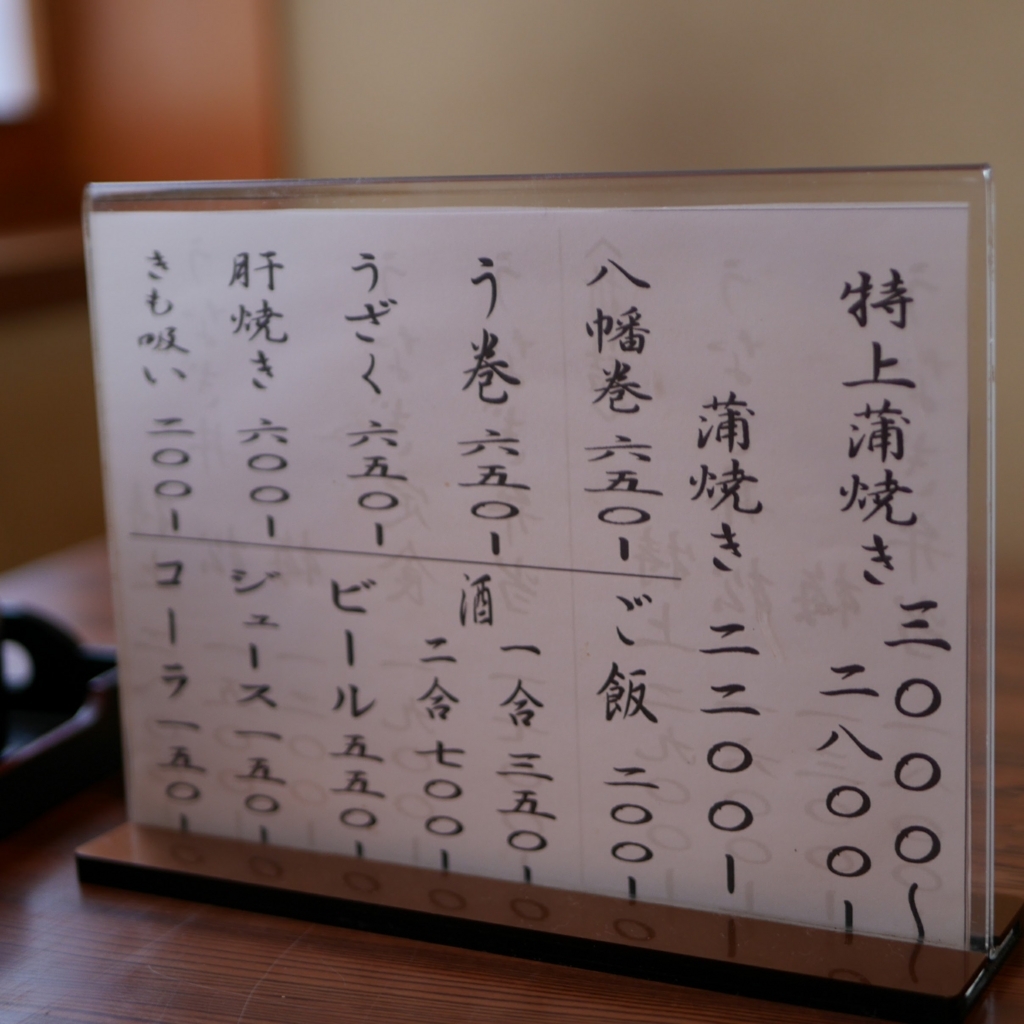 特上蒲焼き 三〇〇〇〜
二八〇〇ー
蒲焼き 二二〇〇ー
八幡巻 六五〇ー
う巻 六五〇ー
うざく 六五〇ー
肝焼き 六〇〇ー
きも吸い 二〇〇ー
ご飯 二〇〇ー
酒 一合 三五〇ー
二合 七〇〇ー
ビール 五五〇ー
ジュース 一五〇ー
コーラ 一五〇ー